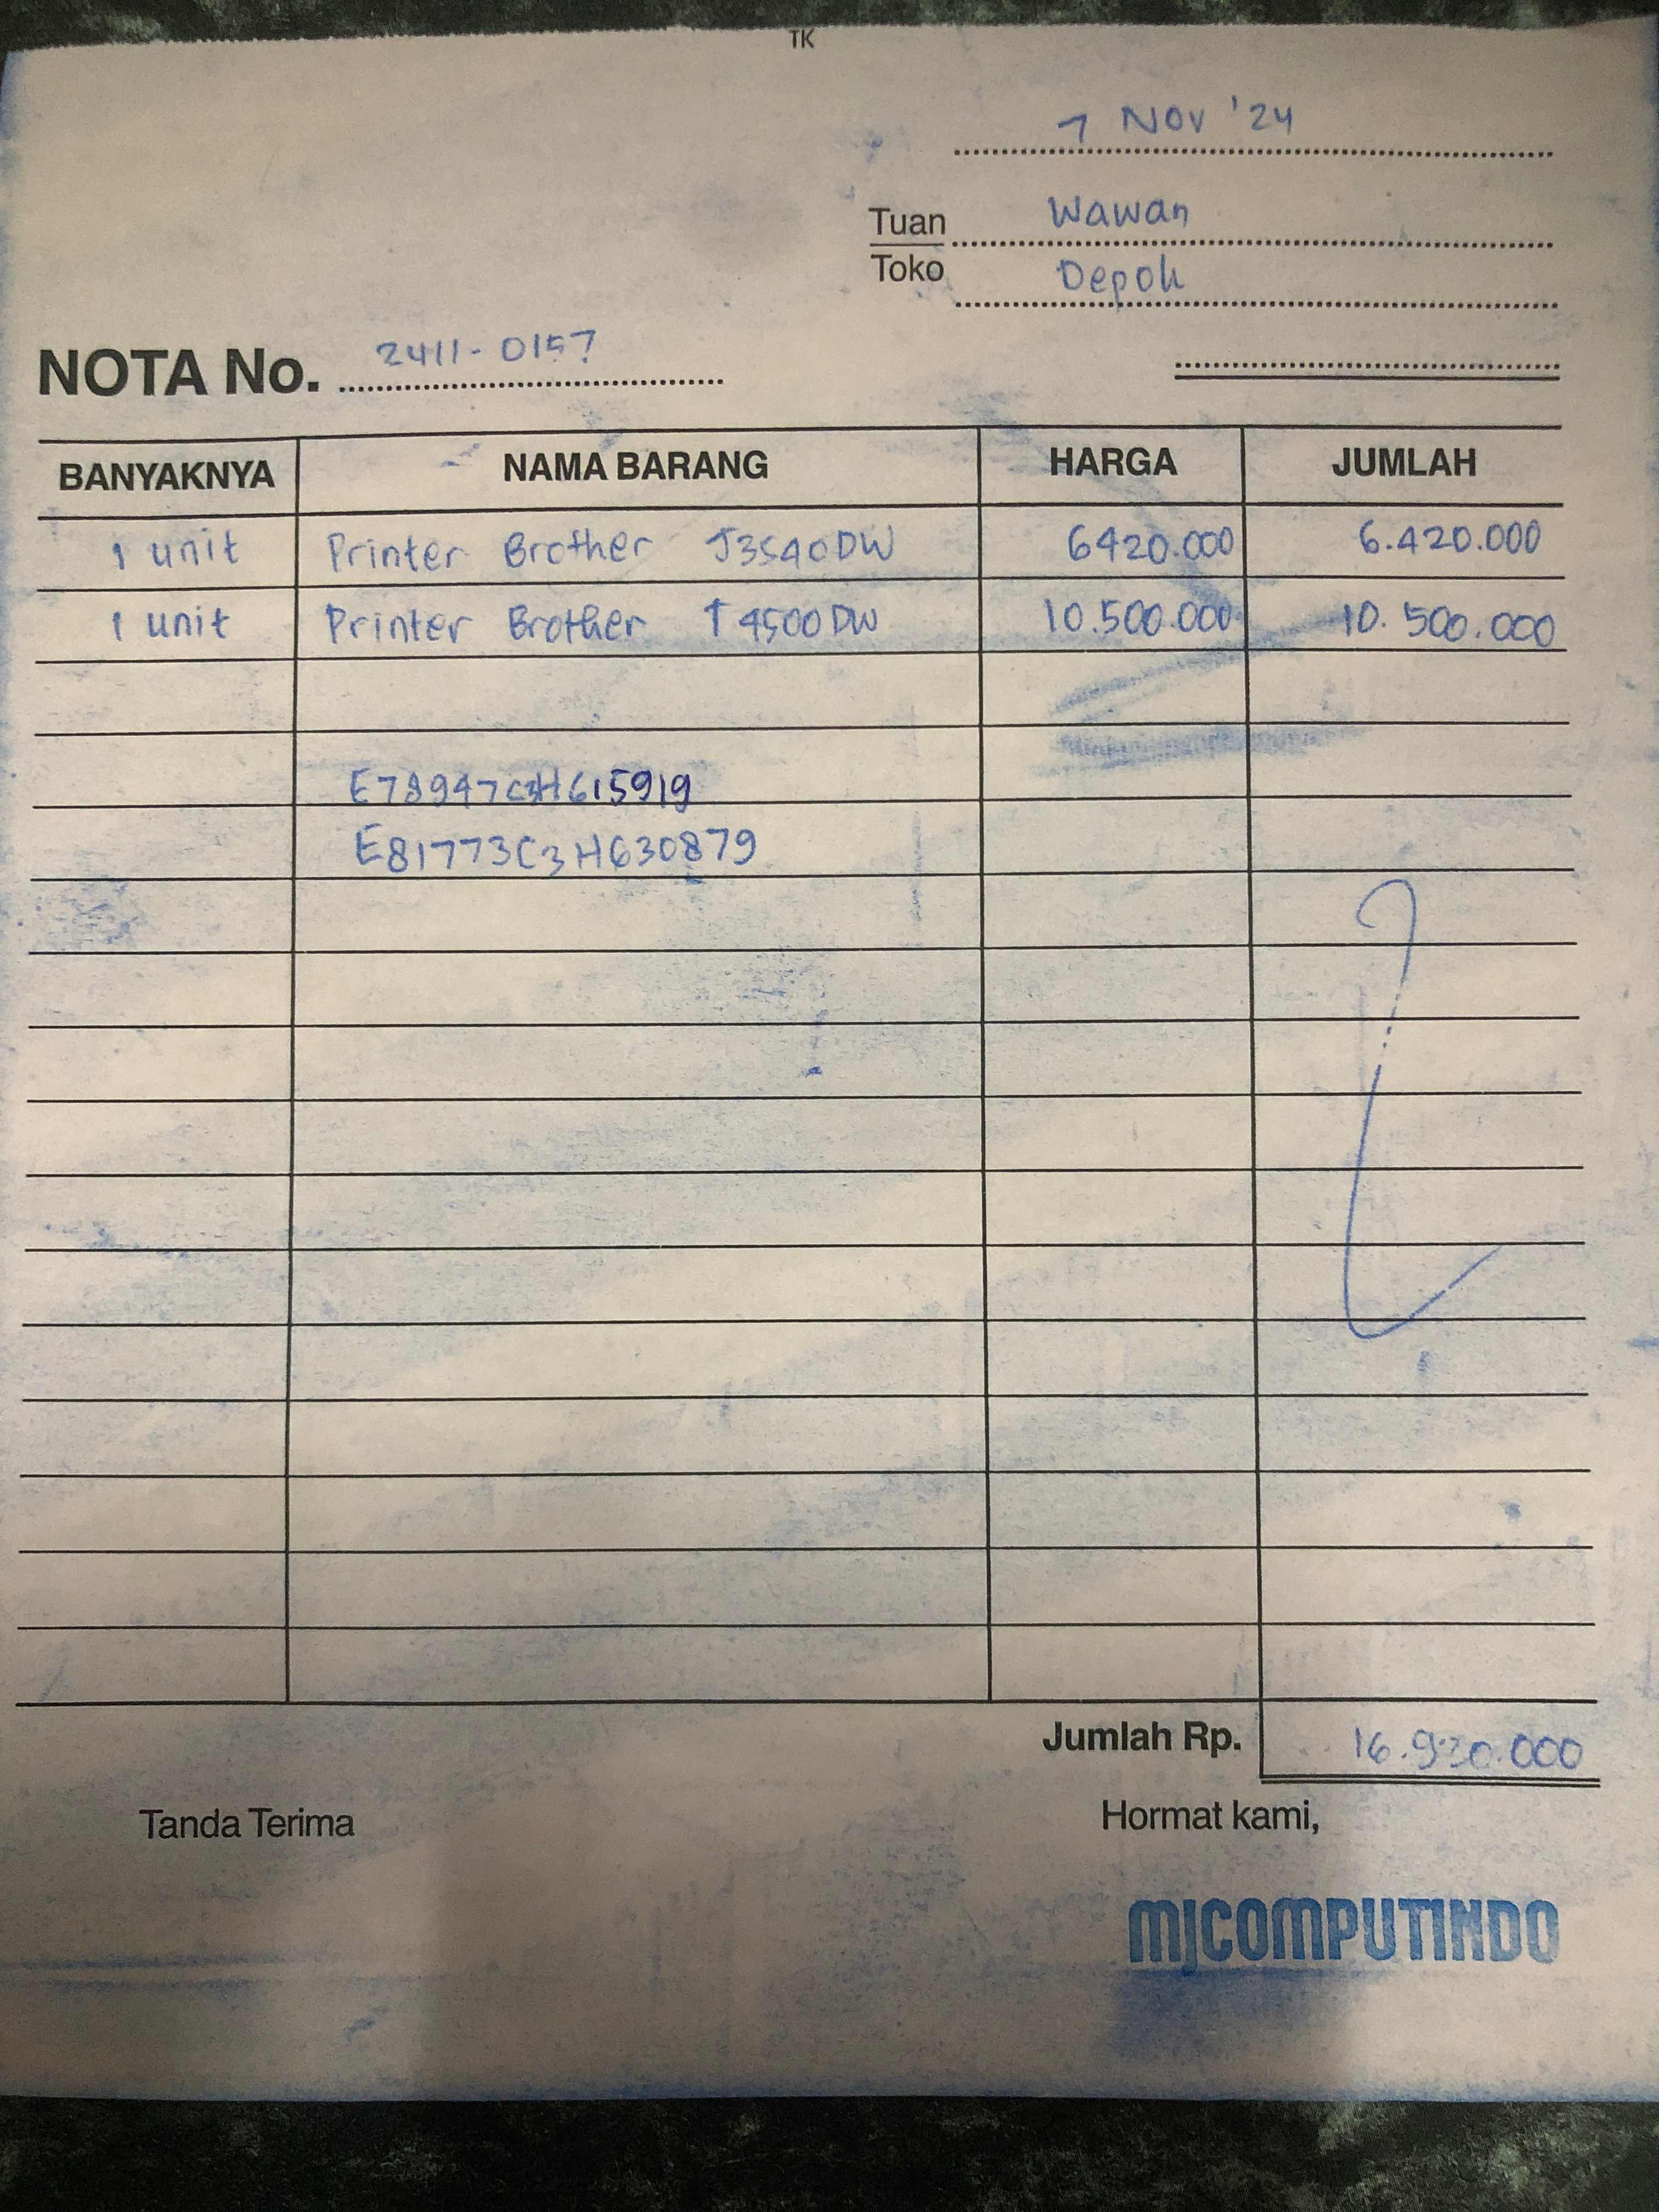 TK
7 Nov '24
Tuan Wawan
Toko Depok
NOTA No. 2411-0157
BANYAKNYA NAMA BARANG HARGA JUMLAH
1 unit Printer Brother J3540DW 6420.000 6.420.000
1 unit Printer Brother T4500DW 10.500.000 10.500.000
E78947C3H615919
E81773C3H630879
Jumlah Rp. 16.920.000
Tanda Terima Hormat kami,
MJCOMPUTINDO